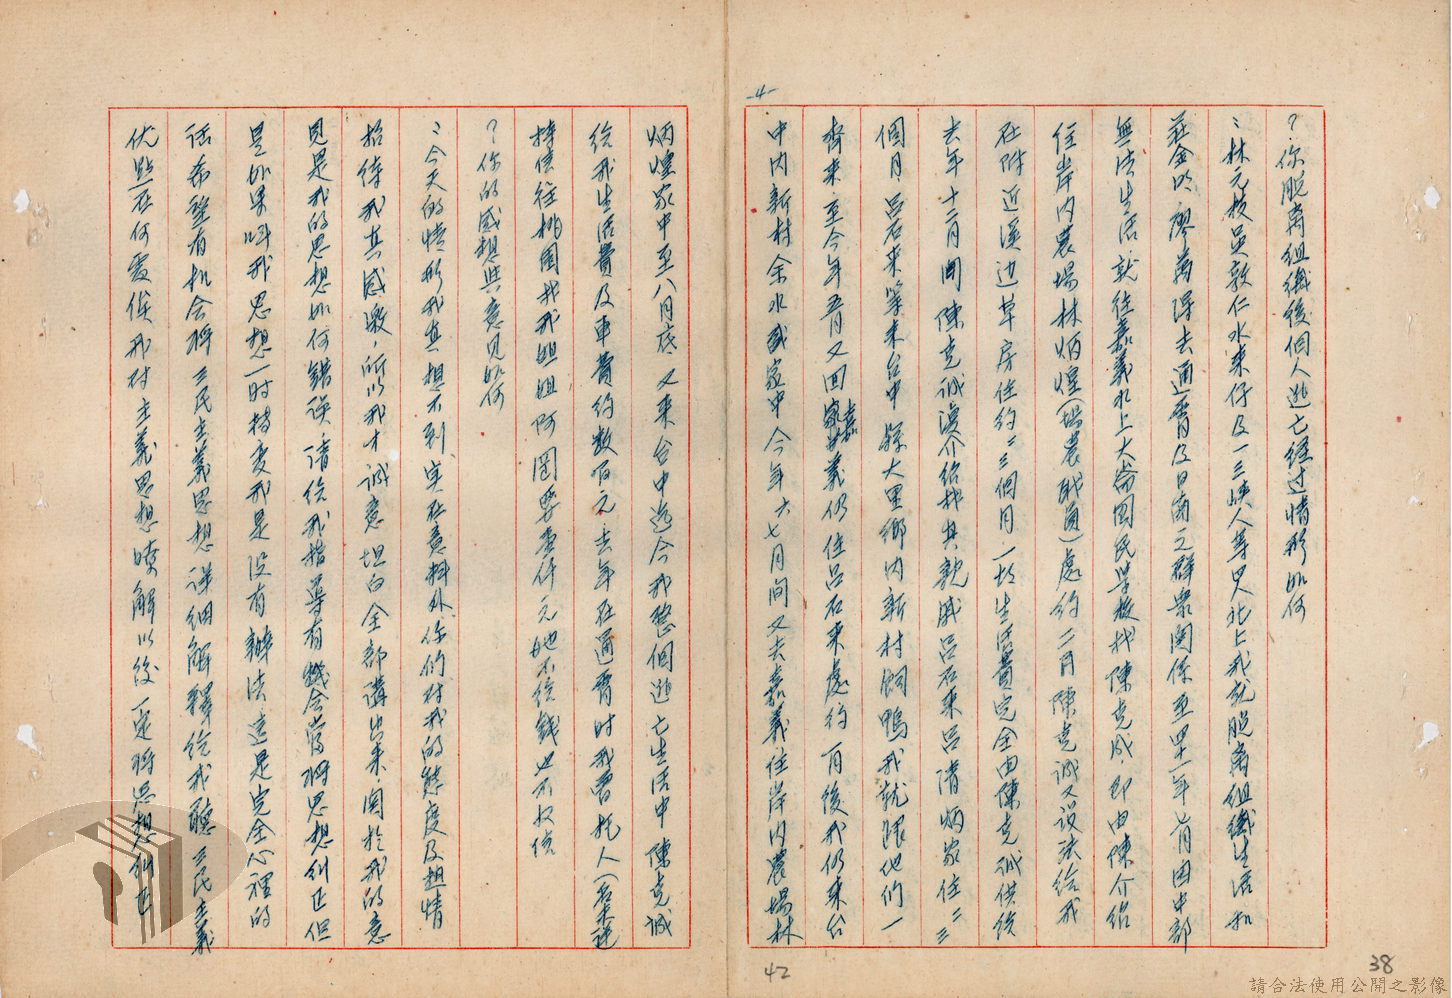 -4-
?你脫离組織後個人逃亡經过情形如何
:林元枝吳敦仁水來仔及一三峽人等四人北上我就脫离組織生活和
莊金 廖萬得去通霄及日南之群衆関係至四一年 月因中部
無法生活就往嘉義水上大崙国民学校找陳克成即由陳介紹
住岸內農場林炳煌(場農职員)處約二月陳克诚又设法给我
在附近溪边草房住约二三個月一切生活費完全由陳克诚供给
去年十二月間陳克诚復介绍找其親戚呂石來呂清炳家住二三
個月呂石來等來台中縣大里鄉內新村飼鴨我就跟他們一
齊來至今年五月又回嘉義仍住呂石來處约 月後我仍來台
中内新村余水盛家中今年六七月间又去嘉義住岸内農場林
炳煌家中至八月底又來台中迄今我整個逃亡生活中陳克诚
给我生活費及車費约数百元去年在通霄时我曾托人(名未詳
持信往桃園找我姐姐阿 要壹仟元她不给錢也不收信
?你的感想與意见如何
:今天的情形我真想不到实在意料外你们对我的態度及超情
招待我真感激,所以我才诚意坦白全部講出來関於我的意
見是我的思想如何錯误请给我指導有機会當將思想糾正但
是如果叫我思想一时转变我是没有辦法這是完全心裡的
话希望有机会將三民主義思想详细解釋给我聽三民主義
优点在何處俟我对主義思想暸解以後一定將思想糾正
42
38
請合法使用公開之影像